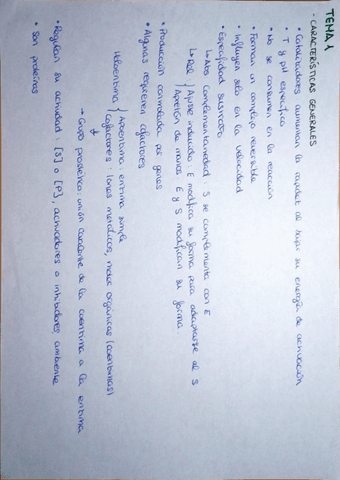 TEMA 1
- CARACTERÍSTICAS GENERALES
• Catalizadores aumentan la rapidez de su energía de activación
• T y pH específica
• No se consumen en la reacción
• Forman un complejo reversible
• Influyen solo en la velocidad
• Especificidad sustrato
↳ Abs Complementariedad S se complementa con E
↳ Rel { Ajuste inducido: E modifica su forma para adaptarse al S
Apretón de manos E y S modifican su forma.
• Producción controlada por genes
• Algunas requieren cofactores
Holoenzima { Apoenzima enzima simple
Cofactores: iones metálicos, molec orgánicas (coenzimas)
→ Grupo prostético: unión covalente de la coenzima a la enzima
• Regulan su actividad [S] o [P], activadores o inhibidores, ambiente
• Son proteínas